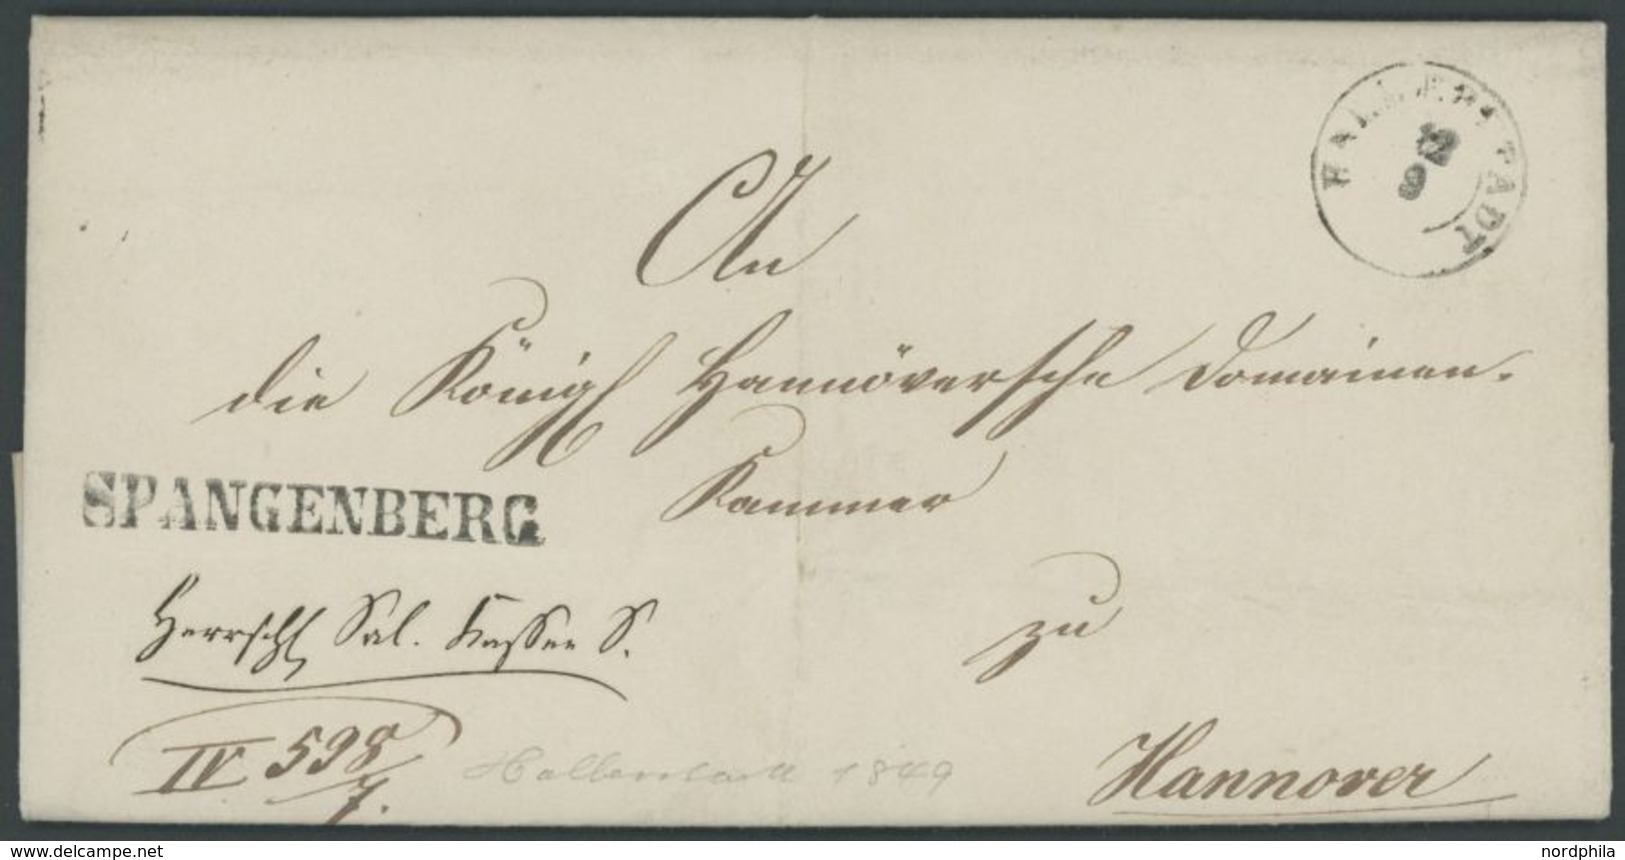 HALBERSTADT
12
9
An
die Königl Hannöversche Domainen-
Kammer
SPANGENBERG
Herrschl Sal. Kassen S.
zu
IV 598/7.
Halberstadt 1849
Hannover
www.delcampe.net
nordphila